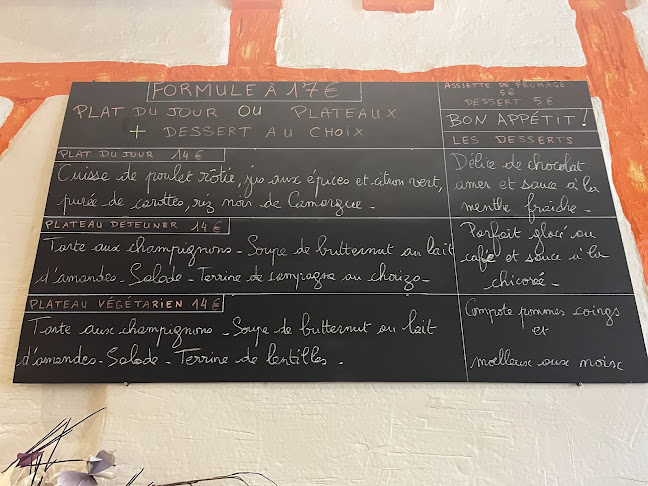 FORMULE À 17€
PLAT DU JOUR OU PLATEAUX
+ DESSERT AU CHOIX
PLAT DU JOUR 14€
Cuisse de poulet rôtie, jus aux épices et citron vert,
purée de carottes, riz noir de Camargue.
PLATEAU DEJEUNER 14€
Tarte aux champignons - Soupe de butternut au lait
d'amandes - Salade - Terrine de campagne au chorizo -
PLATEAU VÉGÉTARIEN 14€
Tarte aux champignons - Soupe de butternut au lait
d'amandes - Salade - Terrine de lentilles -
ASSIETTE DE FROMAGE
5€
DESSERT 5€
BON APPÉTIT !
LES DESSERTS
Délice de chocolat
amer et sauce à la
menthe fraîche -
Parfait glacé au
café et sauce à la
chicorée -
Compote pommes coings
et
moelleux aux noix